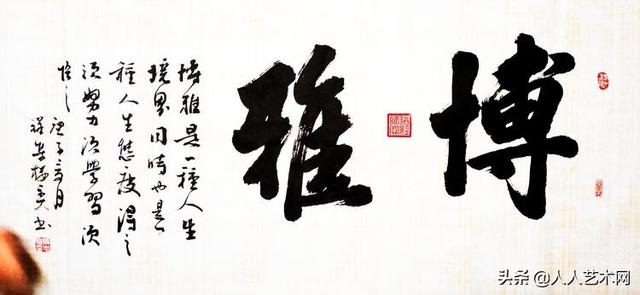 博雅
博雅是一種人生
境界同時也是一
種人生態度得之
须努力须學習须
悟之
庚子 月
书
头条 @人人艺术网